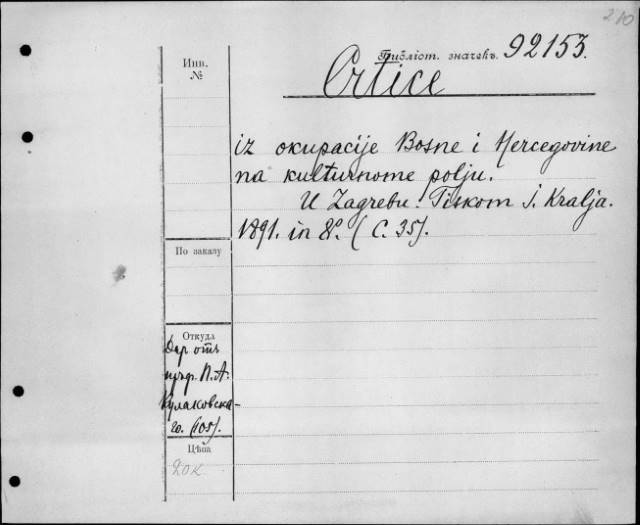 210
Библіот. значекъ. 92153.
Инв.
№
Crtice
iz okupacije Bosne i Hercegovine
na kulturnome polju.
U Zagrebu. Tiskom J. Kralja.
1891. in 8º. (C. 35).
По заказу
Откуда
Даръ отъ
проф. П. А.
Кулаковска-
го. (105).
Цѣна
20 к